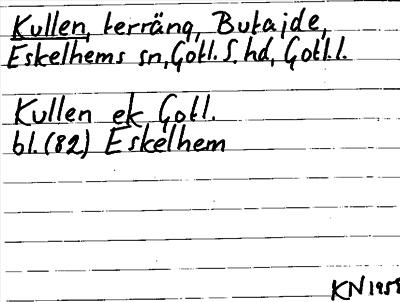 Kullen, terräng, Butajde,
Eskelhems sn, Gotl. S. hd, Gotl. l.
Kullen ek Gotl.
bl. (82) Eskelhem
KN 1958